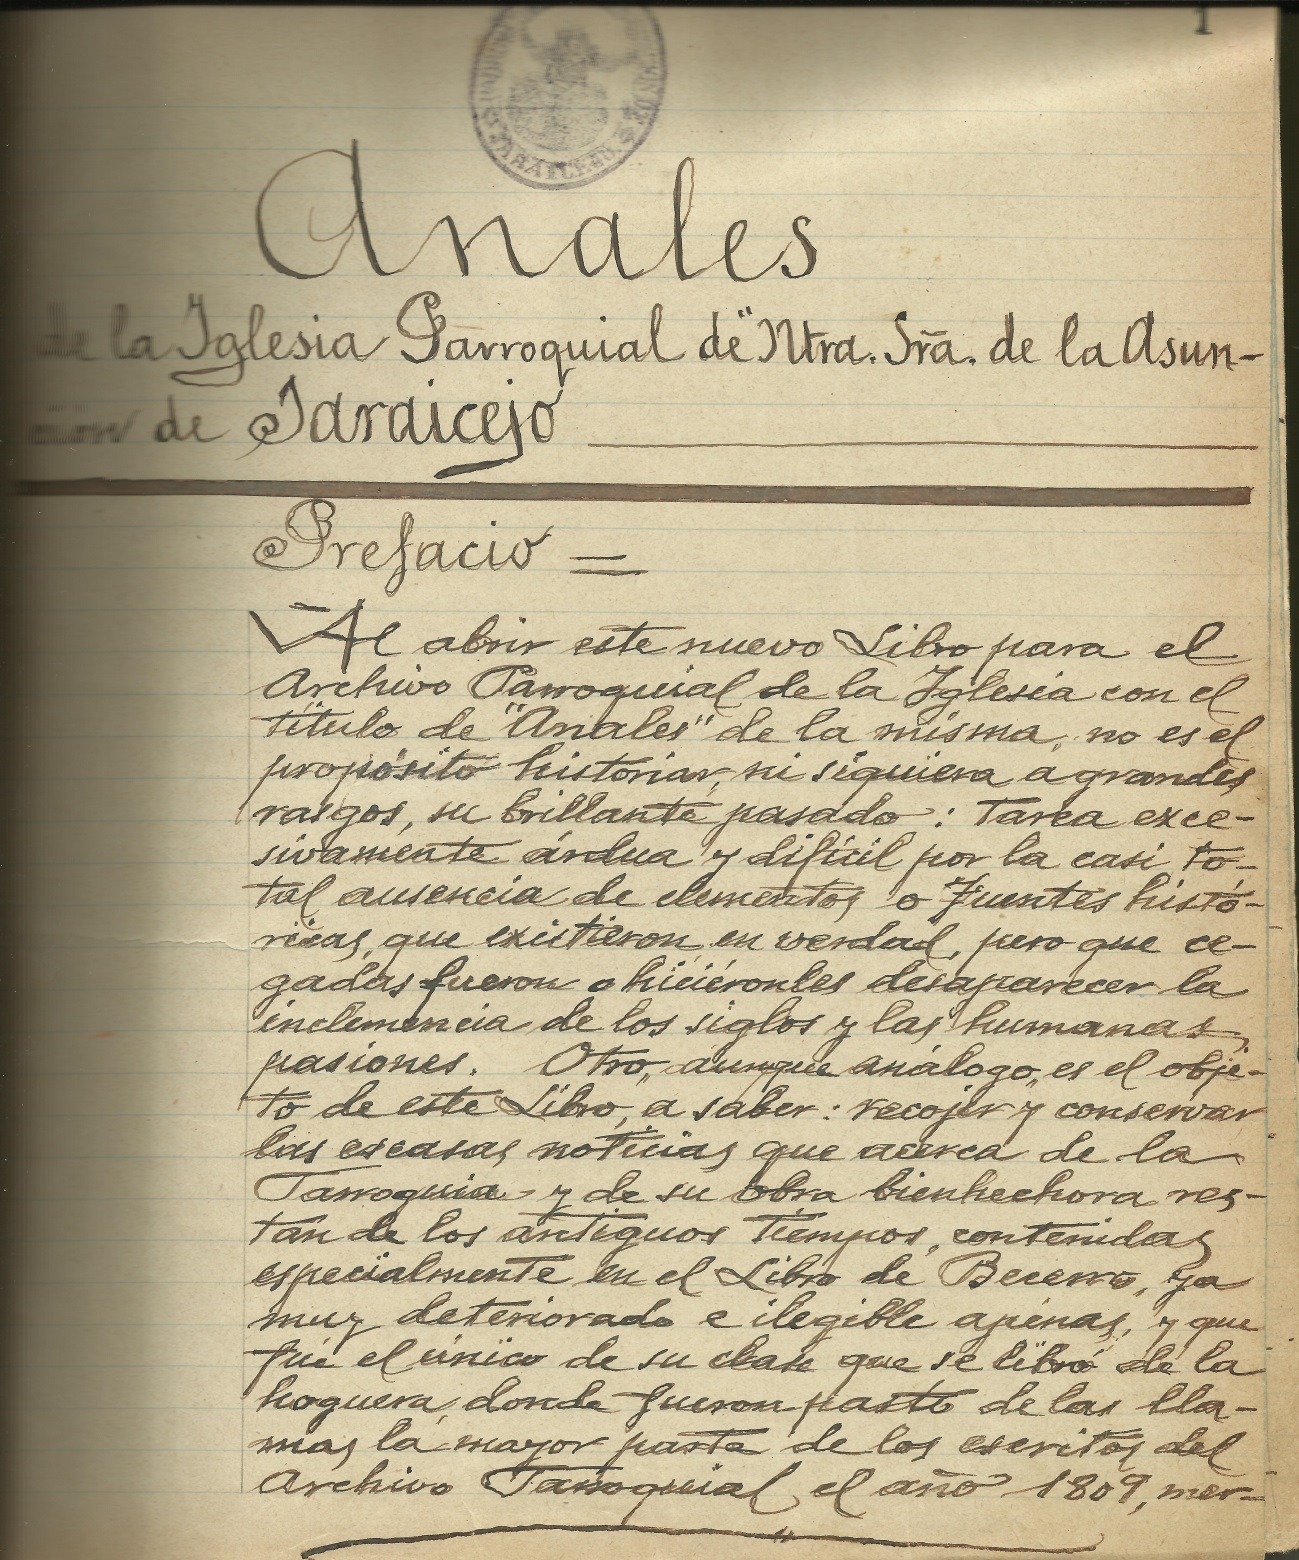 1
JARAICEJO
Anales
de la Iglesia Parroquial de "Ntra. Sra. de la Asun-
ción de Jaraicejo
Prefacio =
Al abrir este nuevo Libro para el
Archivo Parroquial de la Iglesia con el
título de "Anales" de la misma, no es el
propósito historiar, ni siquiera a grandes
rasgos, su brillante pasado: Tarea exce-
sivamente árdua y difícil por la casi to-
tal ausencia de elementos o Fuentes histó-
ricas, que existieron en verdad, pero que ce-
gadas fueron o hiciéronles desaparecer la
inclemencia de los siglos y las humanas
pasiones. Otro, aunque análogo, es el obje-
to de este Libro, a saber: recojer y conservar
las escasas noticias que acerca de la
Parroquia y de su obra bienhechora res-
tan de los antiguos tiempos, contenidas
especialmente en el Libro de Becerro, ya
muy deteriorado e ilegible apenas, y que
fué el único de su clase que se libró de la
hoguera donde fueron pasto de las lla-
mas la mayor parte de los escritos del
Archivo Parroquial el año 1809, mer-